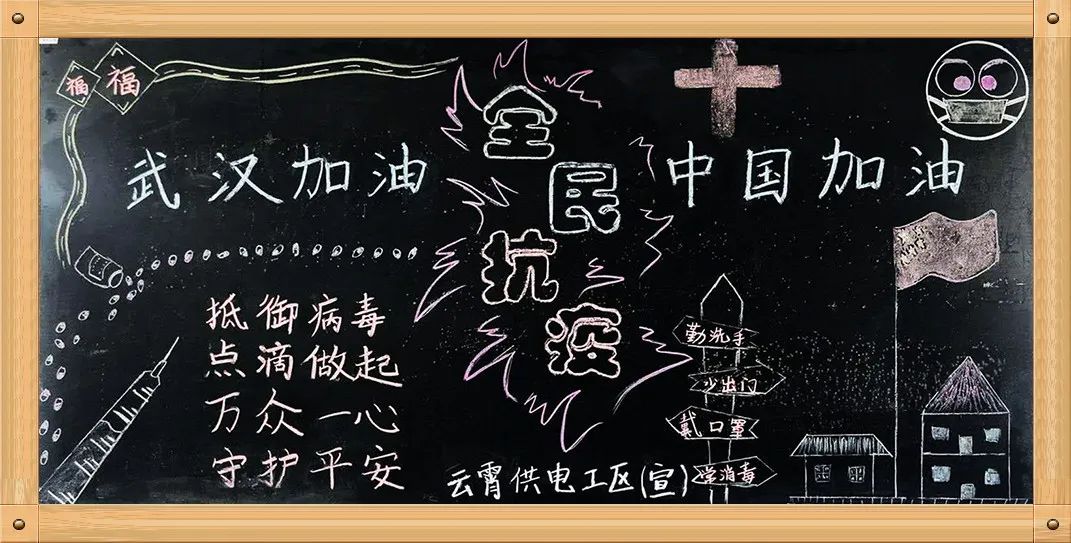 福
福
武汉加油
全民抗疫
中国加油
抵御病毒
点滴做起
万众一心
守护平安
勤洗手
少出门
戴口罩
常消毒
云霄供电工区(宣)